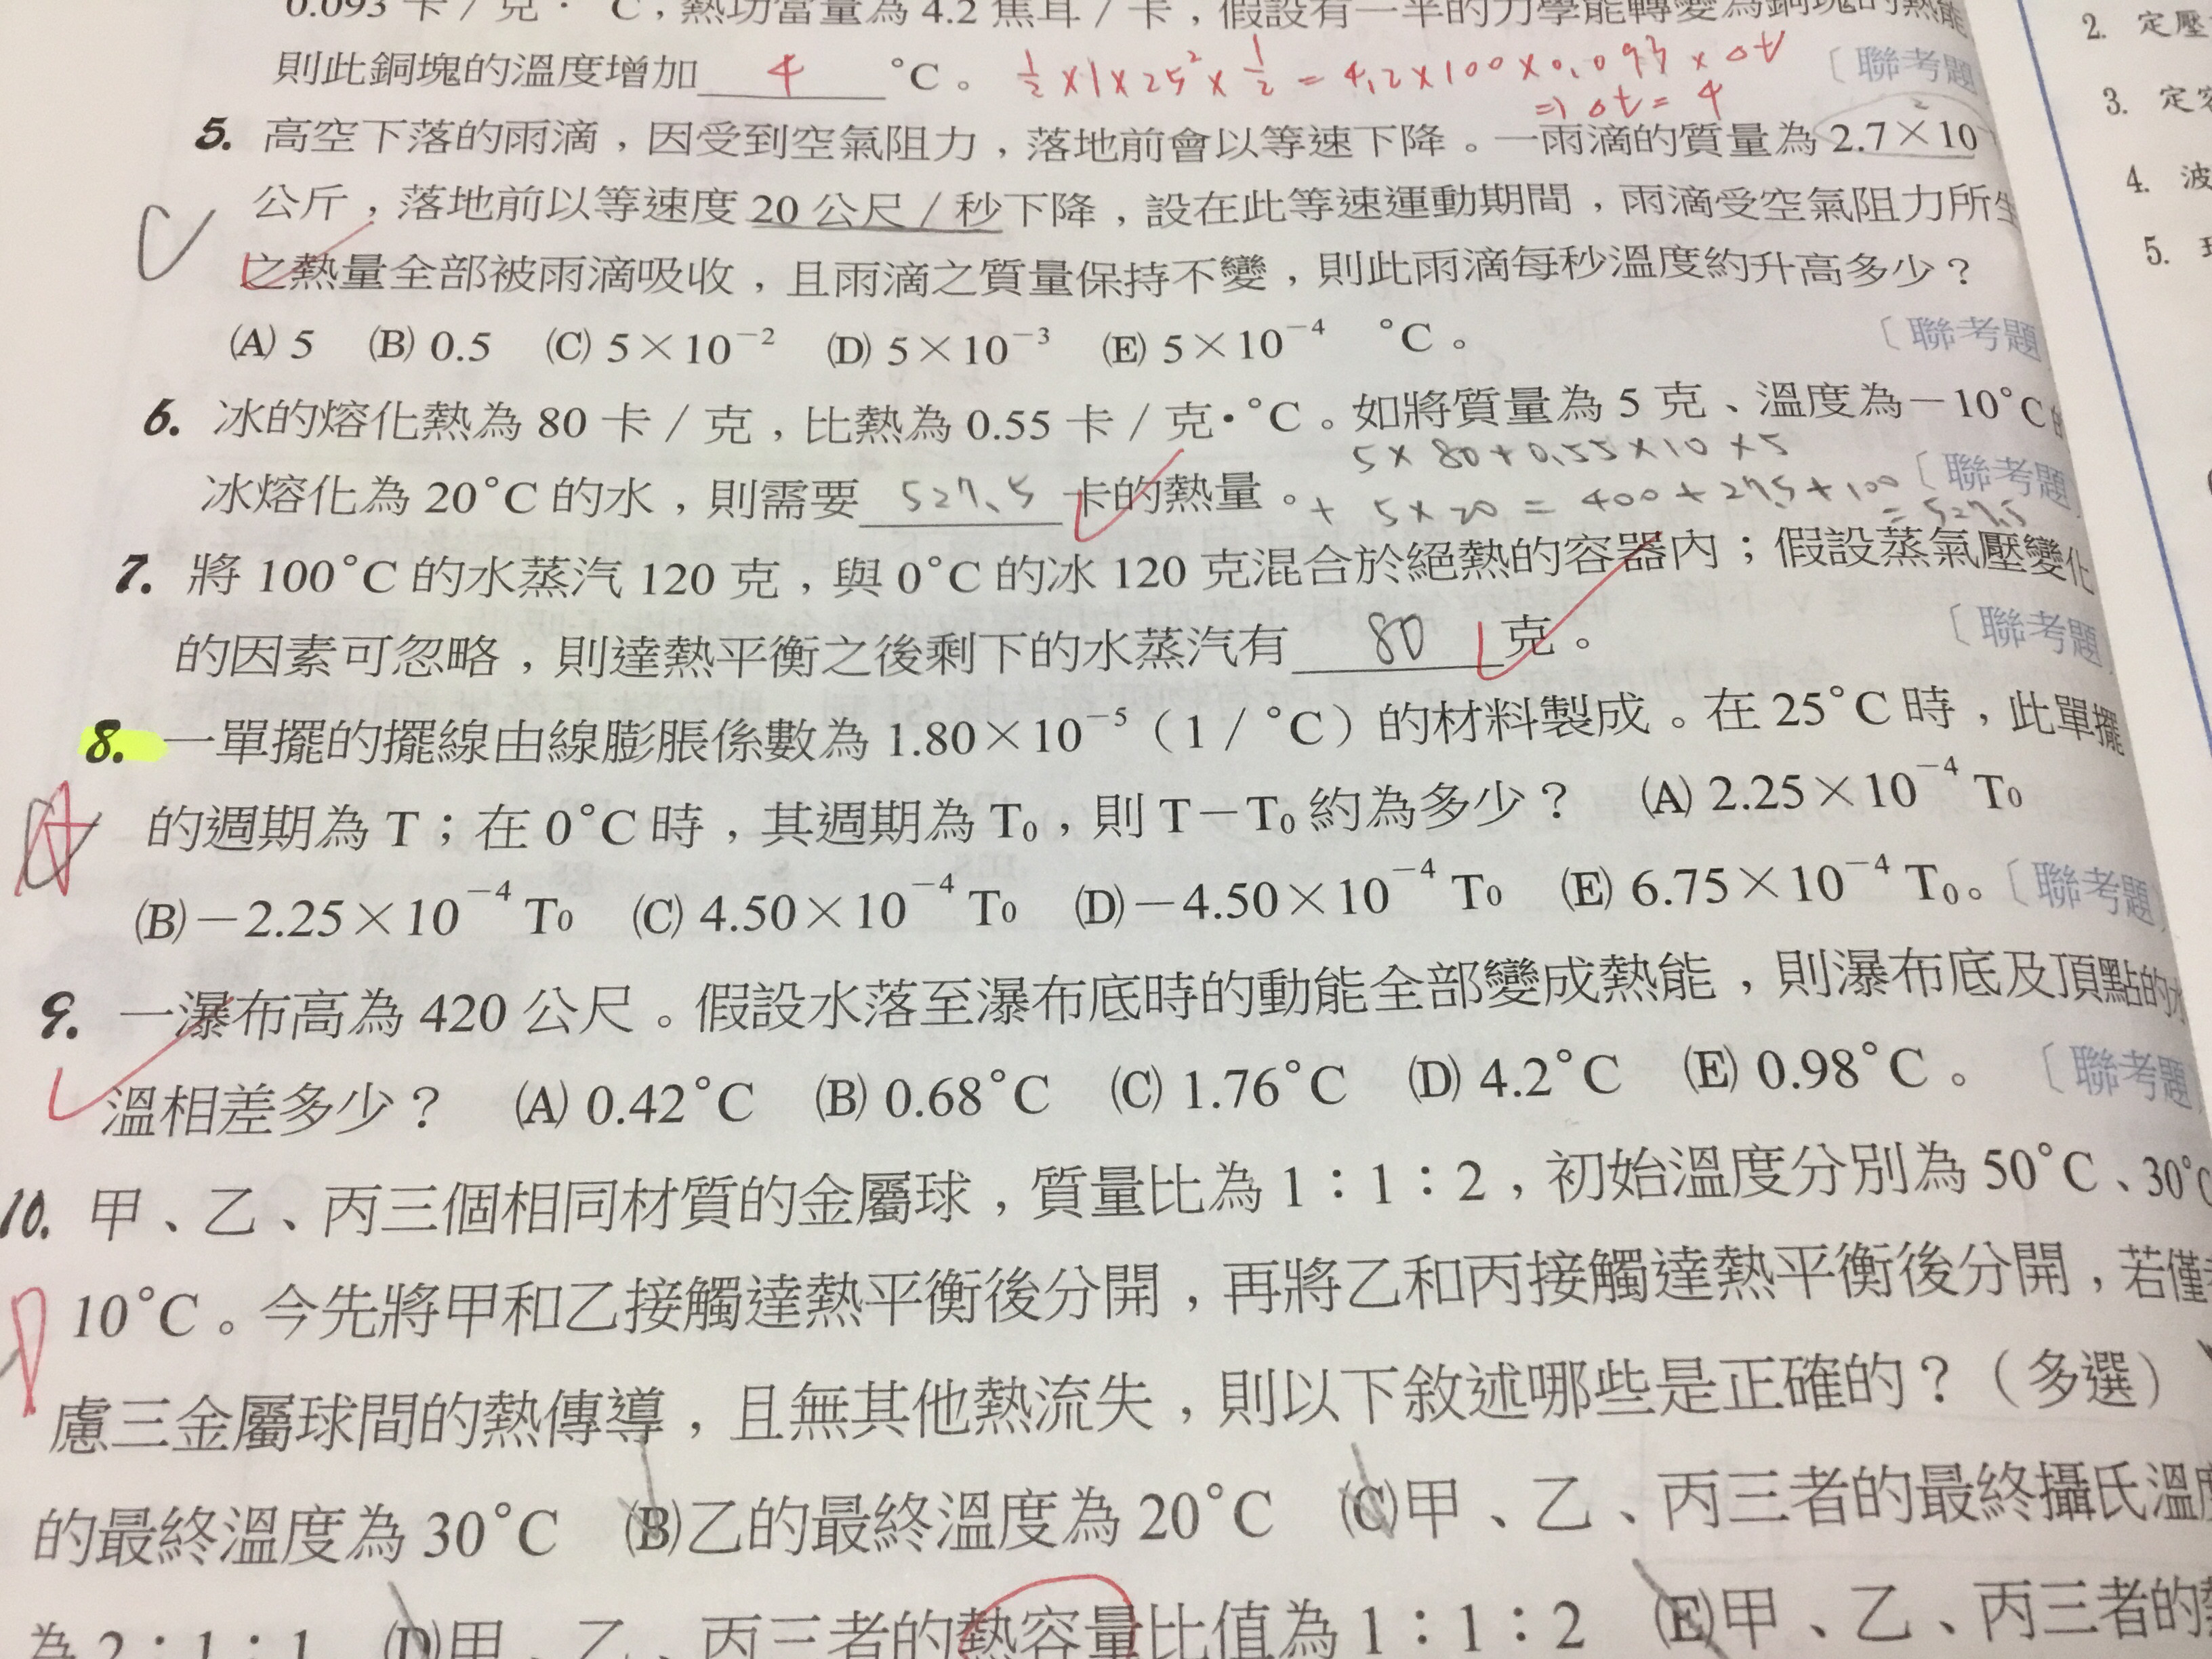 0.093 卡／克．°C，熱功當量為 4.2 焦耳／卡，假設有一半的力學能轉變為銅塊的熱能
則此銅塊的溫度增加 4 °C。 ½×1×25²×½=4.2×100×0.093×Δt 〔聯考題
⇒Δt=4
5. 高空下落的雨滴，因受到空氣阻力，落地前會以等速下降。一雨滴的質量為 2.7×10
公斤，落地前以等速度 20 公尺／秒下降，設在此等速運動期間，雨滴受空氣阻力所生
之熱量全部被雨滴吸收，且雨滴之質量保持不變，則此雨滴每秒溫度約升高多少？
(A) 5 (B) 0.5 (C) 5×10⁻² (D) 5×10⁻³ (E) 5×10⁻⁴ °C。 〔聯考題
6. 冰的熔化熱為 80 卡／克，比熱為 0.55 卡／克•°C。如將質量為 5 克、溫度為－10°C 的
5×80+0.55×10×5
冰熔化為 20°C 的水，則需要 527.5 卡的熱量。 + 5×20 = 400+27.5+100 〔聯考題
=527.5
7. 將 100°C 的水蒸汽 120 克，與 0°C 的冰 120 克混合於絕熱的容器內；假設蒸氣壓變化
的因素可忽略，則達熱平衡之後剩下的水蒸汽有 80 克。 〔聯考題
8. 一單擺的擺線由線膨脹係數為 1.80×10⁻⁵（1／°C）的材料製成。在 25°C 時，此單擺
的週期為 T；在 0°C 時，其週期為 T₀，則 T－T₀ 約為多少？ (A) 2.25×10⁻⁴ T₀
(B)－2.25×10⁻⁴ T₀ (C) 4.50×10⁻⁴ T₀ (D)－4.50×10⁻⁴ T₀ (E) 6.75×10⁻⁴ T₀。〔聯考題〕
9. 一瀑布高為 420 公尺。假設水落至瀑布底時的動能全部變成熱能，則瀑布底及頂點的水
溫相差多少？ (A) 0.42°C (B) 0.68°C (C) 1.76°C (D) 4.2°C (E) 0.98°C。 〔聯考題
10. 甲、乙、丙三個相同材質的金屬球，質量比為 1：1：2，初始溫度分別為 50°C、30°C
10°C。今先將甲和乙接觸達熱平衡後分開，再將乙和丙接觸達熱平衡後分開，若僅考
慮三金屬球間的熱傳導，且無其他熱流失，則以下敘述哪些是正確的？（多選）
的最終溫度為 30°C (B)乙的最終溫度為 20°C (C)甲、乙、丙三者的最終攝氏溫度
為 2：1：1 (D)甲、乙、丙三者的熱容量比值為 1：1：2 (E)甲、乙、丙三者的熱
2. 定壓
3. 定容
4. 波
5.